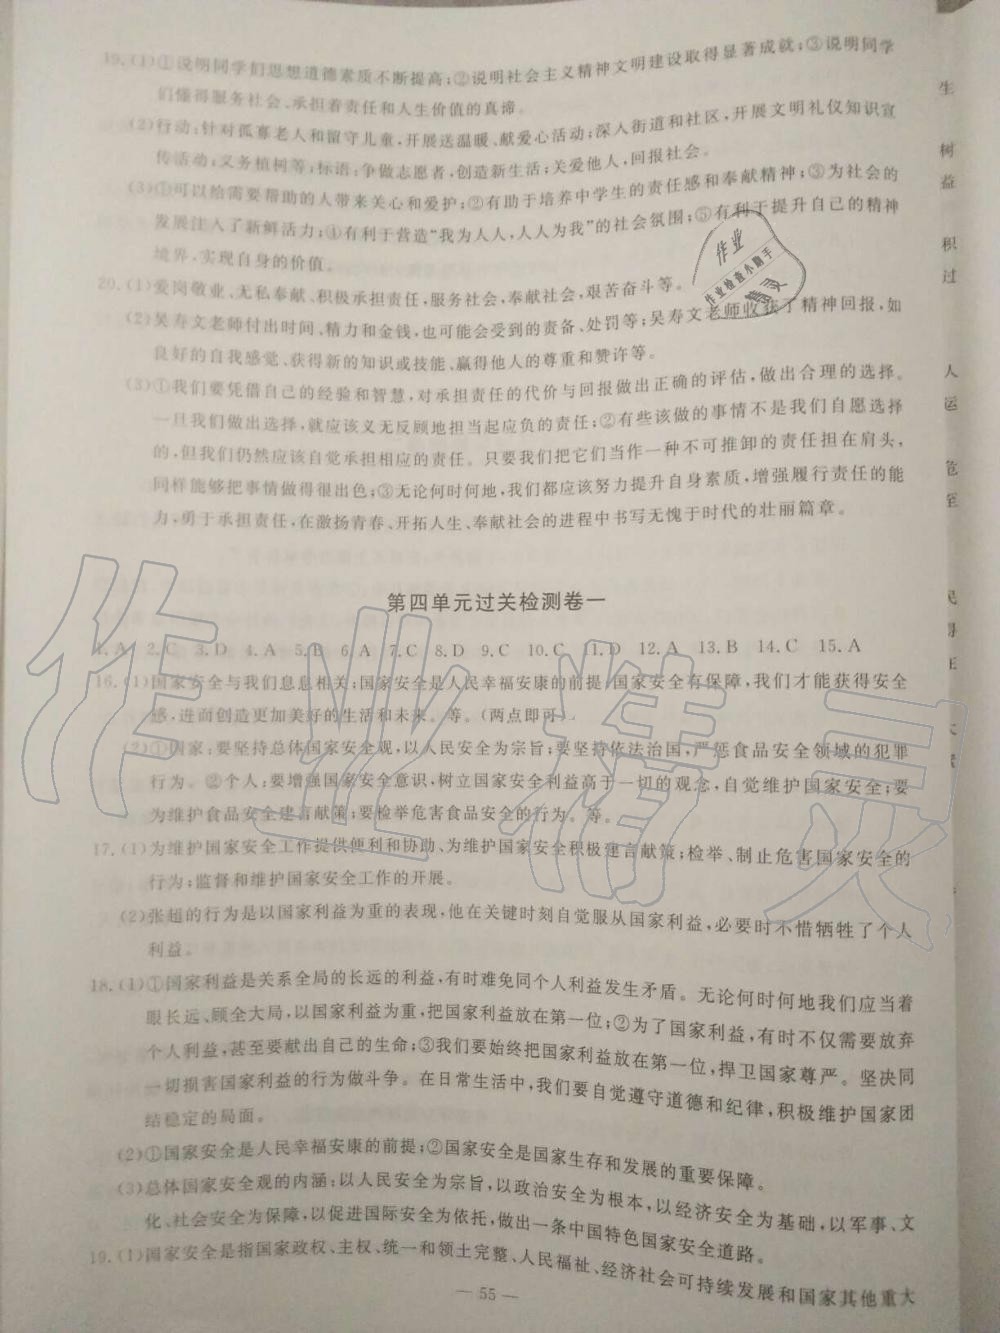 19.(1)①说明同学们思想道德素质不断提高;②说明社会主义精神文明建设取得显著成就;③说明同学
们懂得服务社会、承担着责任和人生价值的真谛。
(2)行动:针对孤寡老人和留守儿童,开展送温暖、献爱心活动;深入街道和社区,开展文明礼仪知识宣
传活动;义务植树等;标语:争做志愿者,创造新生活;关爱他人,回报社会。
(3)①可以给需要帮助的人带来关心和爱护;②有助于培养中学生的责任感和奉献精神;③为社会的
发展注入了新鲜活力;④有利于营造“我为人人,人人为我”的社会氛围;⑤有利于提升自己的精神
境界,实现自身的价值。
20.(1)爱岗敬业、无私奉献、积极承担责任,服务社会,奉献社会,艰苦奋斗等。
(2)吴寿文老师付出时间、精力和金钱,也可能会受到的责备、处罚等;吴寿文老师收获了精神回报,如
良好的自我感觉、获得新的知识或技能、赢得他人的尊重和赞许等。
(3)①我们要凭借自己的经验和智慧,对承担责任的代价与回报做出正确的评估,做出合理的选择。
一旦我们做出选择,就应该义无反顾地担当起应负的责任;②有些该做的事情不是我们自愿选择
的,但我们仍然应该自觉承担相应的责任。只要我们把它们当作一种不可推卸的责任担在肩头,
同样能够把事情做得很出色;③无论何时何地,我们都应该努力提升自身素质,增强履行责任的能
力,勇于承担责任,在激扬青春、开拓人生、奉献社会的进程中书写无愧于时代的壮丽篇章。
第四单元过关检测卷一
1.A 2.C 3.D 4.A 5.B 6.A 7.C 8.D 9.C 10.C 11.D 12.A 13.B 14.C 15.A
16.(1)国家安全与我们息息相关;国家安全是人民幸福安康的前提;国家安全有保障,我们才能获得安全
感,进而创造更加美好的生活和未来。等。(两点即可)
(2)①国家:要坚持总体国家安全观,以人民安全为宗旨;要坚持依法治国,严惩食品安全领域的犯罪
行为。②个人:要增强国家安全意识,树立国家安全利益高于一切的观念,自觉维护国家安全;要
为维护食品安全建言献策;要检举危害食品安全的行为。等。
17.(1)为维护国家安全工作提供便利和协助、为维护国家安全积极建言献策;检举、制止危害国家安全的
行为;监督和维护国家安全工作的开展。
(2)张超的行为是以国家利益为重的表现,他在关键时刻自觉服从国家利益,必要时不惜牺牲了个人
利益。
18.(1)①国家利益是关系全局的长远的利益,有时难免同个人利益发生矛盾。无论何时何地我们应当着
眼长远、顾全大局,以国家利益为重,把国家利益放在第一位;②为了国家利益,有时不仅需要放弃
个人利益,甚至要献出自己的生命;③我们要始终把国家利益放在第一位,捍卫国家尊严。坚决同
一切损害国家利益的行为做斗争。在日常生活中,我们要自觉遵守道德和纪律,积极维护国家团
结稳定的局面。
(2)①国家安全是人民幸福安康的前提;②国家安全是国家生存和发展的重要保障。
(3)总体国家安全观的内涵:以人民安全为宗旨,以政治安全为根本,以经济安全为基础,以军事、文
化、社会安全为保障,以促进国际安全为依托,做出一条中国特色国家安全道路。
19.(1)国家安全是指国家政权、主权、统一和领土完整、人民福祉、经济社会可持续发展和国家其他重大
— 55 —
作业
作业检查小助手
精灵
作业精灵
生
树
益
积
过
人
运
危
至
民
得